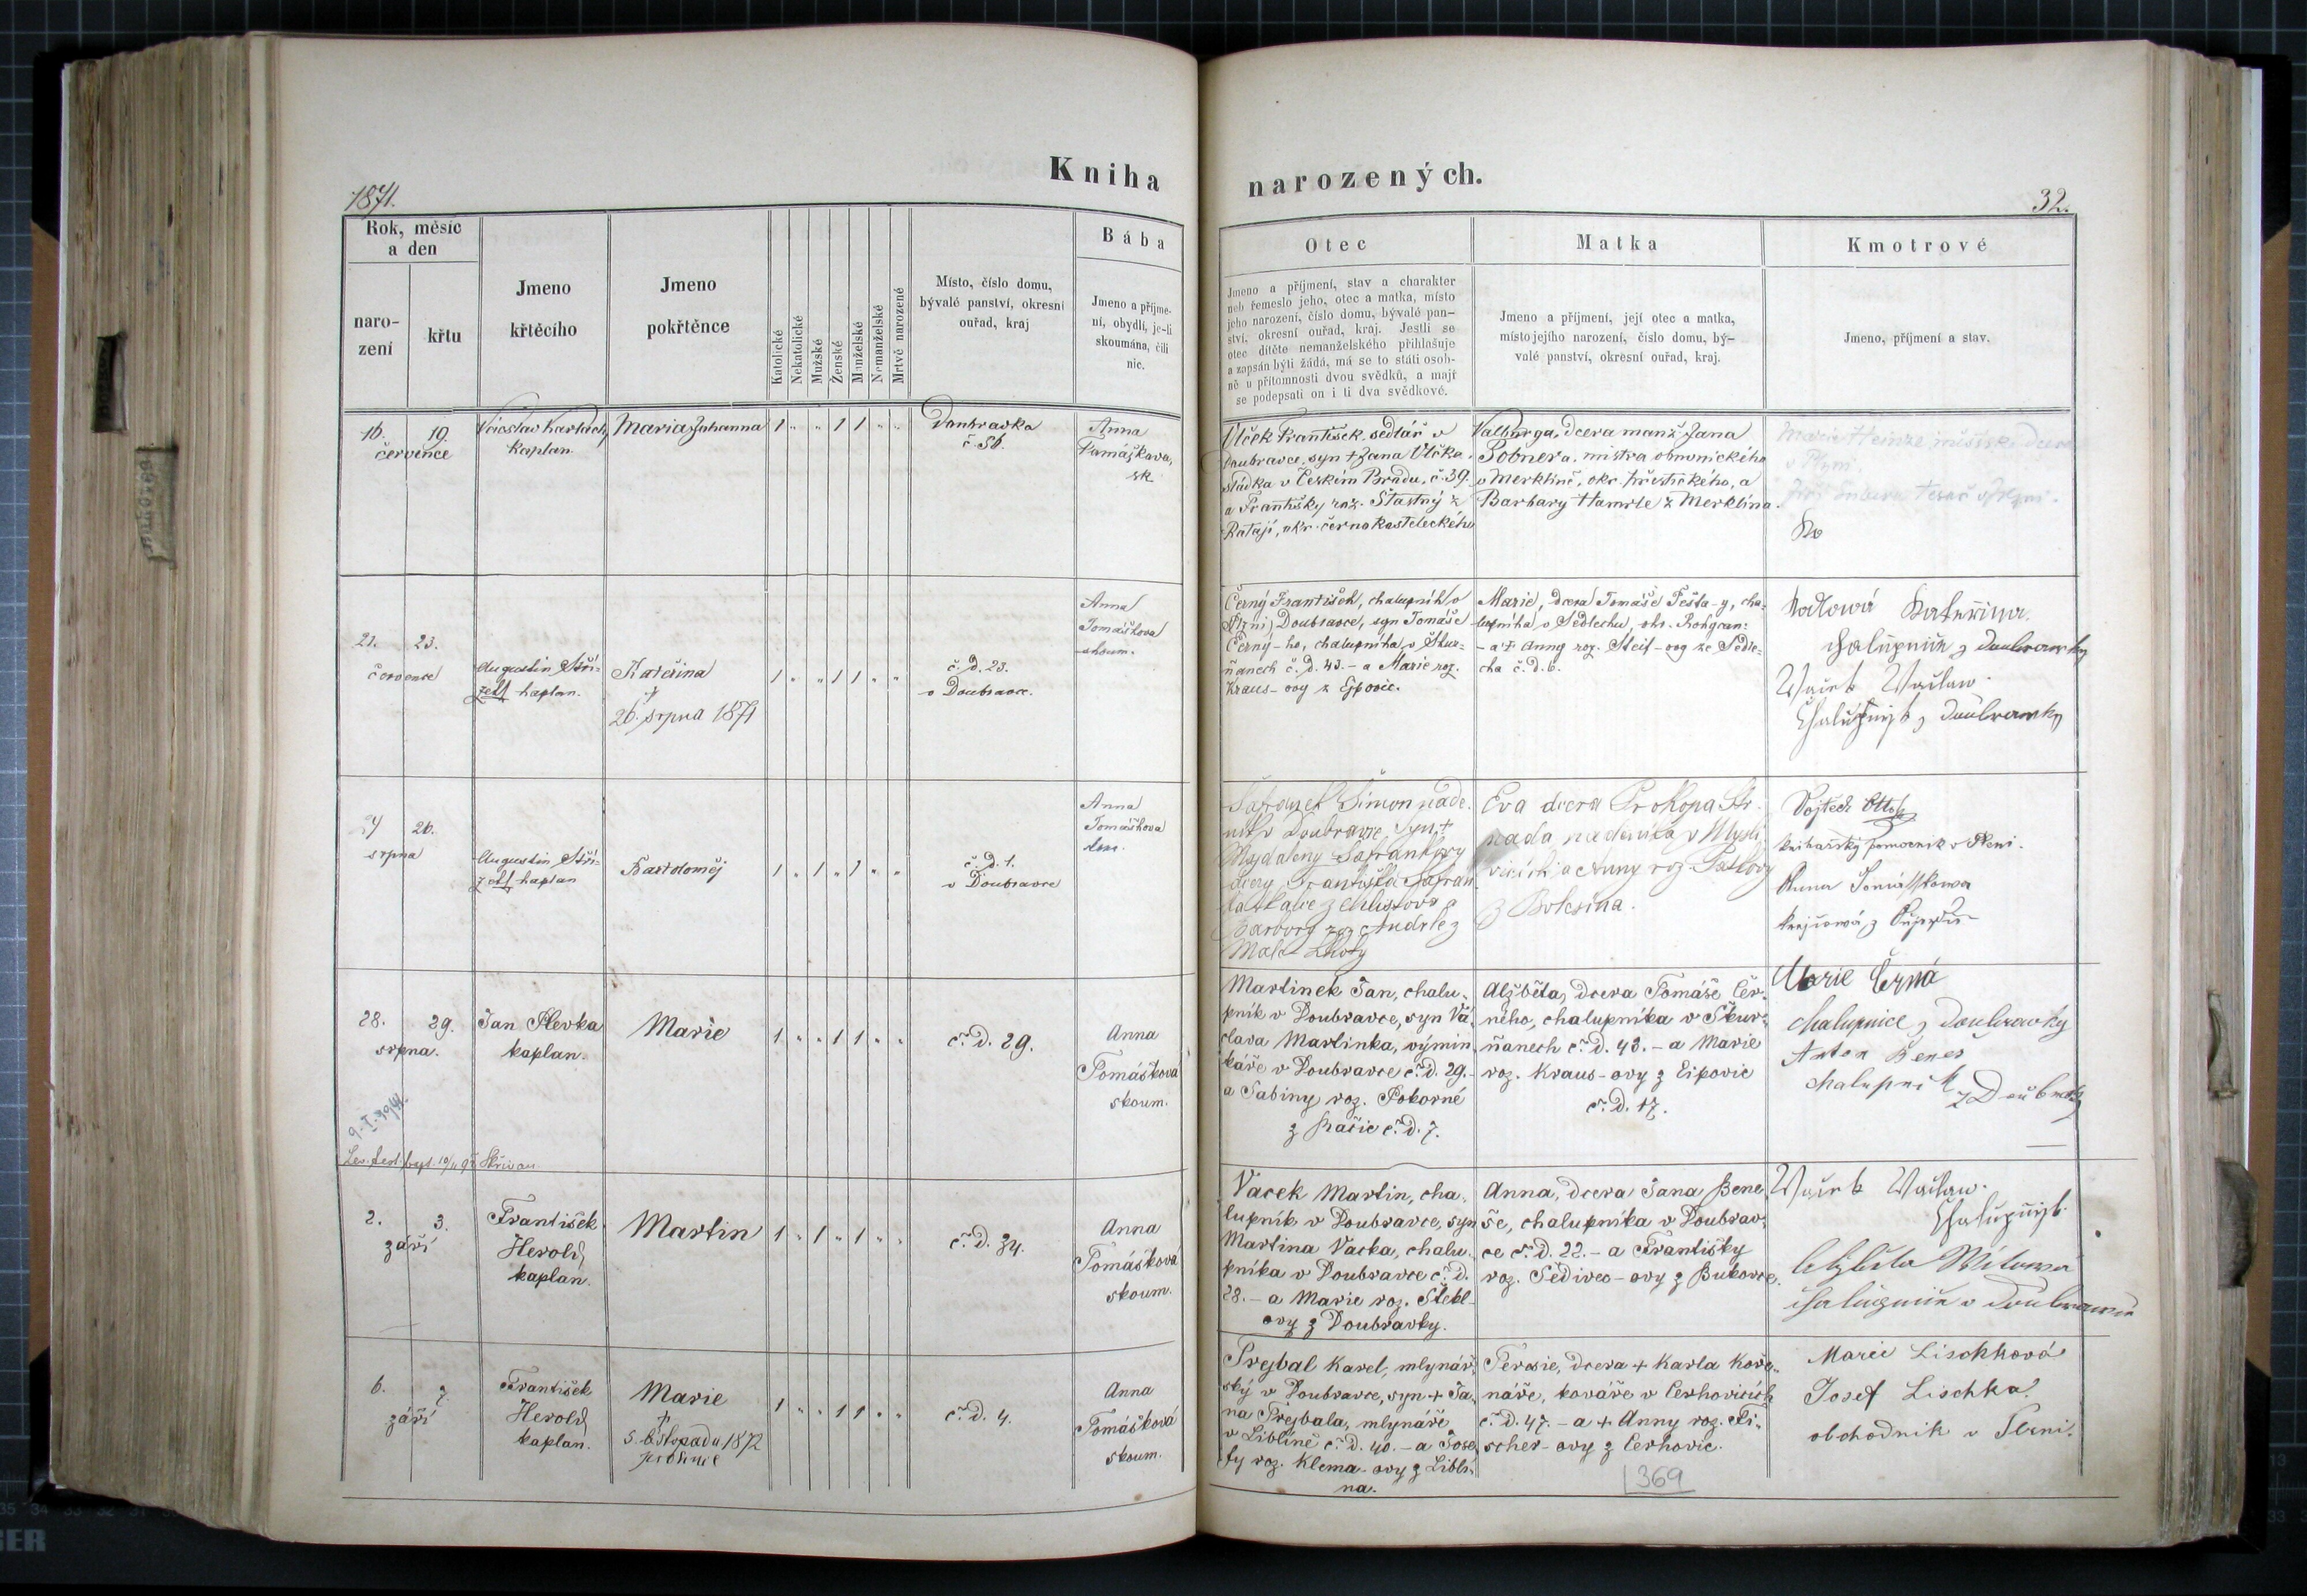 Kniha
narozených.
1871.
32.
Rok, měsíc
a den
naro-
zení
křtu
Jmeno
křtěcího
Jmeno
pokřtěnce
Katolické
Nekatolické
Mužské
Ženské
Manželské
Nemanželské
Mrtvě narozené
Místo, číslo domu,
bývalé panství, okresní
ouřad, kraj
Bába
Jmeno a příjme-
ní, obydlí, je-li
skoumána, čili
nic.
Otec
Jmeno a příjmení, stav a charakter
neb řemeslo jeho, otec a matka, místo
jeho narození, číslo domu, bývalé pan-
ství, okresní ouřad, kraj. Jestli se
otec dítěte nemanželského přihlašuje
a zapsán býti žádá, má se to státi osob-
ně u přítomnosti dvou svědků, a mají
se podepsati on i ti dva svědkové.
Matka
Jmeno a příjmení, její otec a matka,
místo jejího narození, číslo domu, bý-
valé panství, okresní ouřad, kraj.
Kmotrové
Jmeno, příjmení a stav.
16. 19.
července
Karlach
kaplan.
Maria Johanna
1 " " 1 1 " "
Doubravka
č. 56.
Anna
Tomáškova,
zk.
Vlček František, sedlář v
Doubravce, syn + Jana Vlčka,
sládka v Českém Brodu, č. 39.
a Františky roz. Šťastný z
Ratají, okr. černokosteleckého
Valburga, dcera manž. Jana
Pobnera, mistra obuvnického
v Merklíně, okr. přeštického, a
Barbary Hamrle z Merklína.
Marie Heinze
21. 23.
července
Augustin Stří-
zell kaplan.
Kateřina
†
26. srpna 1871
1 " " 1 1 " "
č. d. 23.
v Doubravce.
Anna
Tomáškova
skoum.
Černý František, chalupník v
Doubravce, syn Tomáše
Černý-ho, chalupníka v Škur-
ňanech č. d. 43. - a Marie roz.
Kraus-ovy z Ejpovic.
Marie, dcera Tomáše Pešta-y, cha-
lupníka v Sedlecku, okr. Rokycan-
- a Anny roz. Steif-ovy ze Sedle-
cka č. d. 6.
Kateřina
z Doubrawky
Wacek Waclaw.
Chalupnjk z Doubrawky
24 26.
srpna
Augustin Stří-
zell kaplan
Bartoloměj
1 " 1 " 1 " "
č. d. 1.
v Doubravce
Anna
Tomáškova
skou.
Šafránek Šimon náde-
ník v Doubravce, syn +
Magdaleny Šafránkovy
dcery Františka Šafrán
Barbory roz. Andrle z
Malé Lhoty
Eva dcera Prokopa Str-
nada nádeníka v Mysli
vicích a Anny roz.
z Bolešina.
Vojtěch Ottok
knihařský pomocník v Plzni.
Anna Tomášková
28. 29.
srpna.
Jan Plevka
kaplan.
Marie
1 " " 1 1 " "
č. d. 29.
Anna
Tomášková
skoum.
Martínek Jan, chalu-
pník v Doubravce, syn Vá-
clava Martínka, výmin-
káře v Doubravce č. d. 29. -
a Sabiny roz. Pokorné
z Račic č. d. 7.
Alžběta, dcera Tomáše Čer-
ného, chalupníka v Škur-
ňanech č. d. 43. - a Marie
roz. Kraus-ovy z Eipovic
č. d. 17.
Marie Černá
chalupnice z Doubravky
Anton Beneš
chalupník
z Doubravky
9. I. 1941.
2. 3.
září
František
Herold
kaplan.
Martin
1 " 1 " 1 " "
č. d. 34.
Anna
Tomášková
skoum.
Vacek Martin, cha-
lupník v Doubravce, syn
Martina Vacka, chalu-
pníka v Doubravce č. d.
28. - a Marie roz. Štekl-
ovy z Doubravky.
Anna, dcera Jana Bene
še, chalupníka v Doubrav-
ce č. d. 22. - a Františky
roz. Šedivec-ovy z Bukovce.
Wacek Waclaw.
Chalupnjk
6. 7.
září
František
Herold
kaplan.
Marie
†
5. listopadu 1872
1 " " 1 1 " "
č. d. 4.
Anna
Tomášková
skoum.
Prejbal Karel, mlynář-
ský v Doubravce, syn + Ja-
na Prejbala, mlynáře
v Liblíně č. d. 40. - a Jose
fy roz. Klema-ovy z Liblí-
na.
Teresie, dcera + Karla Koře-
náře, kováře v Cerhovicích
č. d. 47. - a + Anny roz. Fi-
scher-ovy z Cerhovic.
Marie Lischková
Josef Lischka
obchodník v Plzni.
369